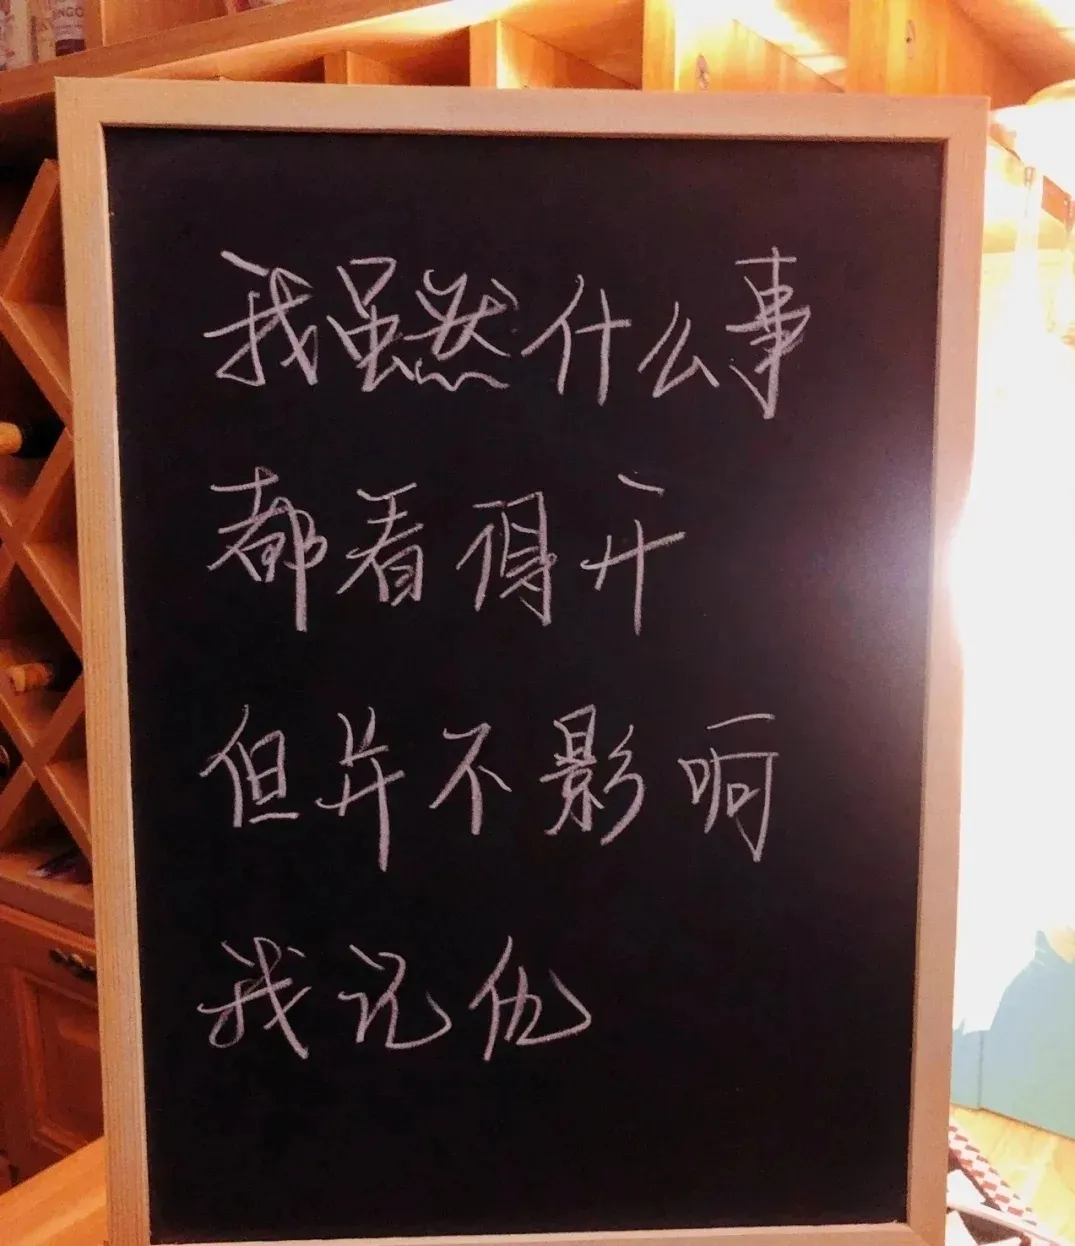 我虽然什么事
都看得开
但并不影响
我记仇